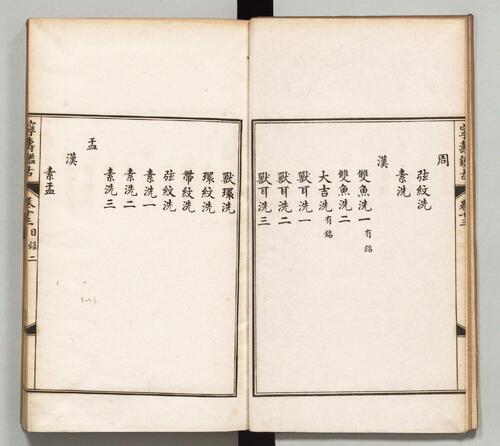 寧壽鑑古
卷十三
周
弦紋洗
素洗
漢
雙魚洗一有銘
雙魚洗二
大吉洗有銘
獸耳洗一
獸耳洗二
獸耳洗三
獸環洗
環紋洗
帶紋洗
弦紋洗
素洗一
素洗二
素洗三
盂
漢
素盂
寧壽鑑古
卷十三目錄二